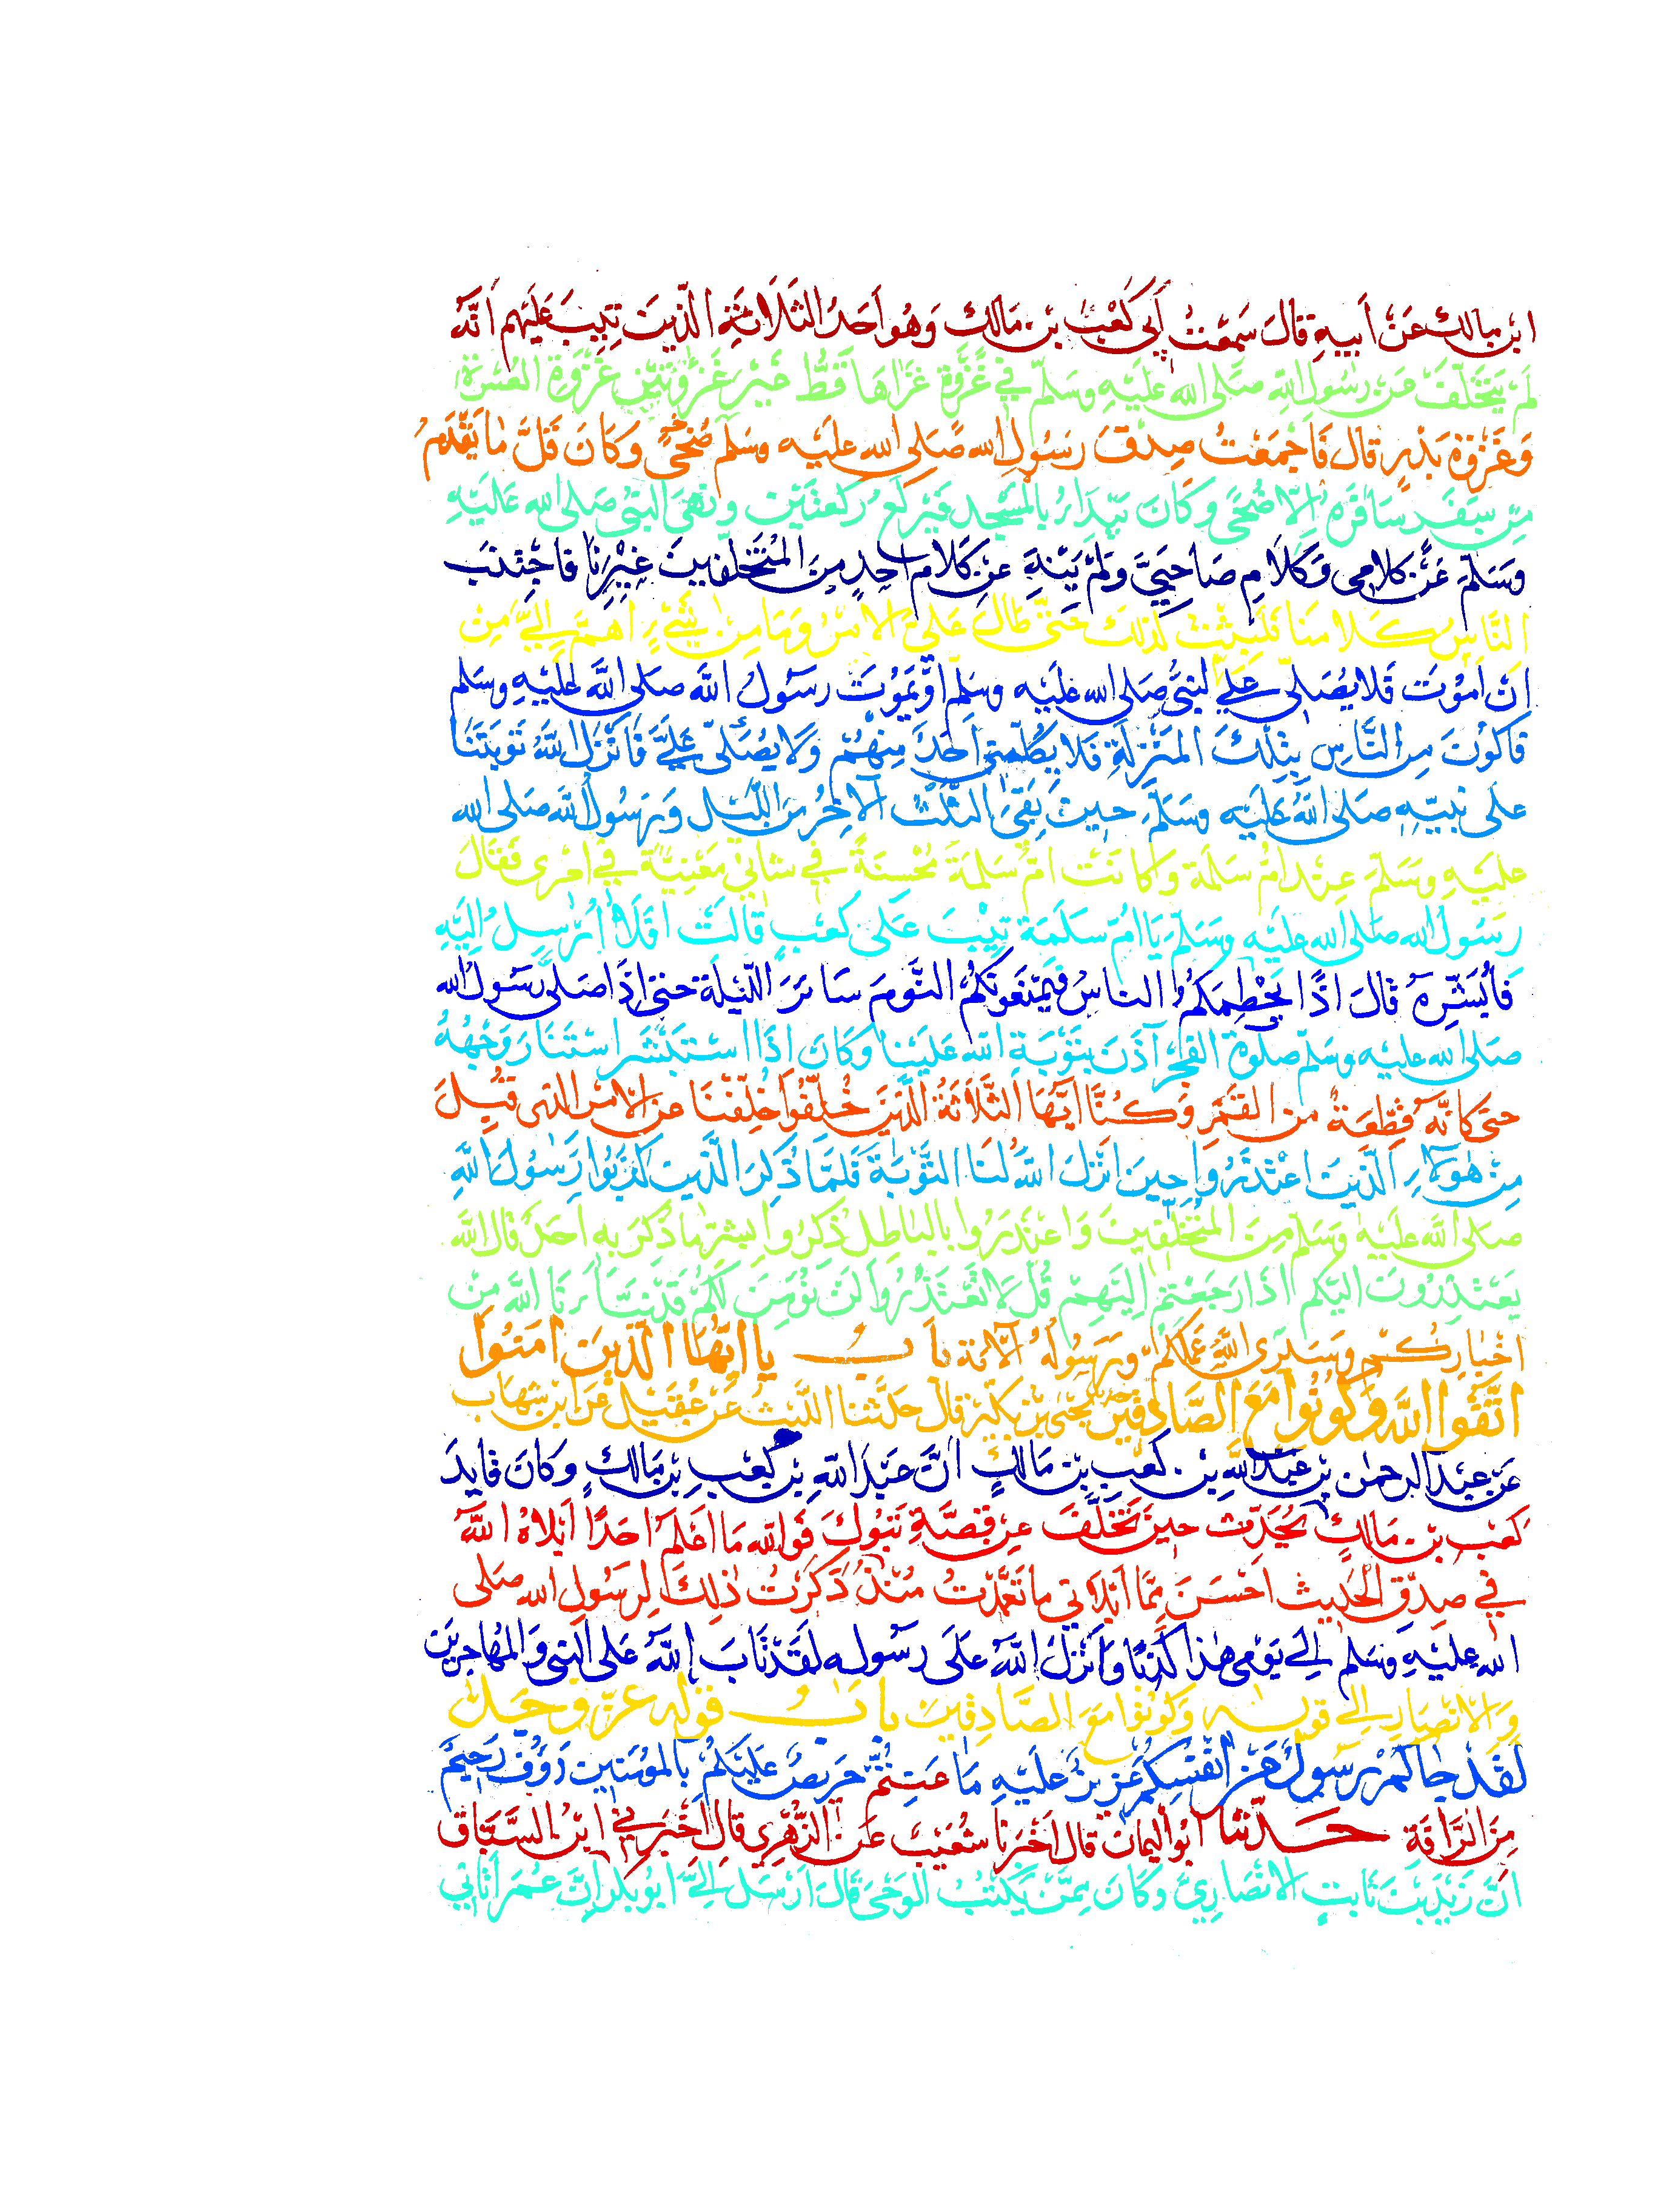 ابن مالك عَنْ اَبيهِ قالَ سَمِعْتُ اَبِي كَعْبَ بن مَالك وَهُو اَحَدُ الثَلَاثَةِ الّذينَ تِيبَ عَلَيْهِم اَنَّهُ
لَمْ يَتَخَلَّفْ عَنْ رسُولِ اللهِ صَلى اللهُ عَلَيْهِ وسَلّم في غَزْوَةٍ غَزَاهَا قَطُّ غَيْرَ غَزْوَتَيْنِ غَزْوَةِ العُسْرَةِ
وَغَزْوَةِ بَدْرٍ قال فَاَجْمَعْتُ صِدْقَ رسُولِ الله صَلى الله عليه وسَلم ضُحًى وَكَانَ قَلَّ مَا يَقْدَمُ
مِن سَفَرٍ سَافَرَهُ اِلّا ضُحًى وَكَانَ يَبْدَاُ بالمَسْجِدِ فَيَرْكَعُ رَكعَتَيْنِ وَنَهَى النبيُ صَلى الله عَلَيْهِ
وَسَلّمَ عَنْ كلامي وَكَلَامِ صَاحِبَيَّ وَلَمْ يَنْهَ عَنْ كَلَامِ اَحَدٍ مِنَ المُتَخَلِّفينَ غَيْرِنَا فَاجْتَنَبَ
النَّاسُ كَلَامَنَا فَلَبِثْتُ لذلك حَتّى طَالَ عَلَىَّ الامْرُ وَمَا مِنْ شَيْءٍ اَهَمَّ اِلَيَّ مِن
اَنْ اَمُوْتَ فَلا يُصَلِي عَلَيَّ النبيُّ صَلى الله عَلَيْه وسَلم اَوْ يَمُوْتَ رسُولُ اللهِ صَلى اللهُ عَلَيْهِ وسَلم
فَاكُوْنَ مِن النَّاسِ بِتلْكَ المَنْزِلَةِ فَلا يُكَلِّمُنِي اَحَدٌ مِنْهُمْ وَلا يُصَلّي عَلَيَّ فَاَنْزَلَ اللهُ تَوبَتَنَا
عَلى نَبيّهِ صَلى اللهُ عَلَيْهِ وسَلَّمَ حِينَ بَقِيَ الثُّلُثُ الآخِرُ مِنَ اللّيْلِ وَرَسُولُ اللهِ صَلى الله
عليهِ وَسَلَّمَ عِنْدَ اُمِّ سَلَمَة وَكَانَتْ امُّ سَلَمَةَ مُحْسِنَةً في شَاني مَعْنِيَّةً في اَمْرِى فَقَالَ
رَسُولُ الله صَلى الله عَلَيْه وسَلّمَ يَا اُمَّ سَلَمَة تِيْبَ عَلَى كَعْبٍ قَالَتْ اَفَلَا اُرْسِلُ اِلَيْهِ
فَاُبَشِّرَهُ قَالَ اِذًا يَحْطِمَكُمُ الناسُ فَيَمْنَعُونَكُمُ النَّوْمَ سَائِرَ اللّيْلَة حَتى اِذَا صَلّى رَسُولُ الله
صَلى الله عليه وسَلم صلوة الفَجْرِ آذَنَ بِتَوْبَةِ اللهِ عَلَيْنَا وَكَانَ اِذَا اسْتَبْشَرَ اسْتَنَارَ وَجْهُهُ
حتى كَانّهُ قِطْعَةٌ من القَمَرِ وَكُنَّا اَيّهَا الثَّلَاثَةُ الَّذِيْنَ خُلِّفُوْا خُلِّفْنَا عن الاَمْرِ الذي قُبِلَ
مِنْ هؤلاءِ الَّذينَ اعْتَذَرُوا حِينَ اَنْزَلَ اللهُ لَنَا التَّوْبَةَ فَلَمَّا ذُكِرَ الَّذينَ كَذَبُوا رَسُولَ اللهِ
صَلى اللهُ عَلَيْهِ وَسَلّم مِنَ المُتَخَلِّفينَ وَاعْتَذَرُوا بالبَاطِلِ ذُكِرُوا بِشَرِّ ما ذُكِرَ بِهِ اَحَدٌ قَالَ الله
يَعْتَذِرُونَ اِلَيْكم اذَا رَجَعْتُم اِلَيْهِمْ قُلْ لَا تَعْتَذِرُوا لَنْ نُؤْمِنَ لَكُمْ قَدْ نَبَّاَنَا اللهُ مِنْ
اَخْبَارِكُمْ وَسَيَرَى اللهُ عَمَلَكُمْ وَرَسُولُهُ الآيَة بَابُ يا ايُّهَا الّذِيْنَ اٰمَنُوا
اتَّقُوا اللهَ وَكُونُوا مَعَ الصَّادِقِينَ يَحْيَى بْنُ بُكَيْرٍ قَال حَدَّثَنَا اللَّيْثُ عَنْ عُقَيْلٍ عَن ابْنِ شِهَاب
عَنْ عَبْد الرحمٰن بْنِ عَبْد اللهِ بْنِ كَعْبِ بْنِ مَالكٍ اَنَّ عَبْدَ اللهِ بْن كَعْب بْنِ مَالكٍ وَكَانَ قَايِدَ
كَعْب بْنِ مَالكٍ يُحَدِّث حينَ تَخَلَّفَ عن قصَّةِ تَبُوْكَ فَوَاللهِ مَا اَعْلَمُ اَحَدًا اَبْلَاهُ اللهُ
في صِدْقِ الحَديثِ اَحْسَنَ مِمَّا اَبْلَانِي مَا تَعَمَّدْتُ مُنْذُ ذَكَرْتُ ذٰلِكَ لِرَسُولِ اللهِ صَلى
اللهُ عَلَيْهِ وَسَلم اِلَى يَوْمي هٰذَا كَذِبًا وَاَنْزَلَ اللهُ عَلَى رَسُولِهِ لَقَدْ تَابَ اللهُ عَلى النبيّ وَالمُهَاجِرِيْنَ
وَالانْصَارِ الى قوله وَكُوْنُوْا مَعَ الصَّادِقِيْنَ بَابُ قَوْلِه عَزّ وَجَلّ
لَقَدْ جاءَكُمْ رَسُولٌ مِنْ اَنْفُسِكُم عَزيزٌ عَلَيْهِ مَا عَنِتُّمْ حَرِيْصٌ عَلَيْكُمْ بِالمُؤمِنينَ رَؤُفٌ رَحِيْمٌ
مِنَ الرَّافَةِ حَدّثنا ابُو اليمانِ قَالَ اَخْبَرَنَا شُعَيْبٌ عَن الزُّهْرِي قَالَ اَخْبَرَنِي ابْنُ السَّبَّاقِ
اَنَّ زَيْدَ بْنَ ثَابتٍ الانْصَارِيَّ وَكَانَ مِمَّنْ يَكْتُبُ الوَحْيَ قَالَ اَرْسَلَ اِلَيَّ اَبُو بَكْر اِنَّ عُمَرَ اَتَانِي